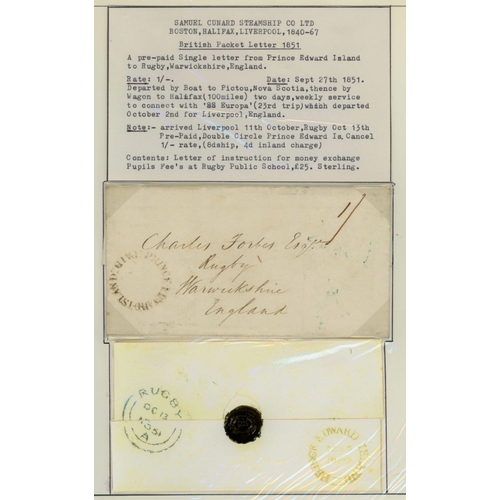 SAMUEL CUNARD STEAMSHIP CO LTD
BOSTON,HALIFAX,LIVERPOOL,1840-67
British Packet Letter 1851
A pre-paid Single letter from Prince Edward Island
to Rugby,Warwickshire,England.
Rate: 1/-. Date: Sept 27th 1851.
Departed by Boat to Pictou,Nova Scotia,thence by
Wagon to Halifax(100miles) two days,weekly service
to connect with 'SS Europa'(23rd trip)which departed
October 2nd for Liverpool,England.
Note:- arrived Liverpool 11th October,Rugby Oct 13th
Pre-Paid,Double Circle Prince Edward Is,Cancel
1/-rate,(8dship, 4d inland charge)
Contents: Letter of instruction for money exchange
Pupils Fee's at Rugby Public School,£25. Sterling.
1/
Charles Forbes Esqre
Rugby
Warwickshire
England
PRINCE EDWARD ISLAND
RUGBY
OC 13
1851
A
PRINCE EDWARD ISLAND